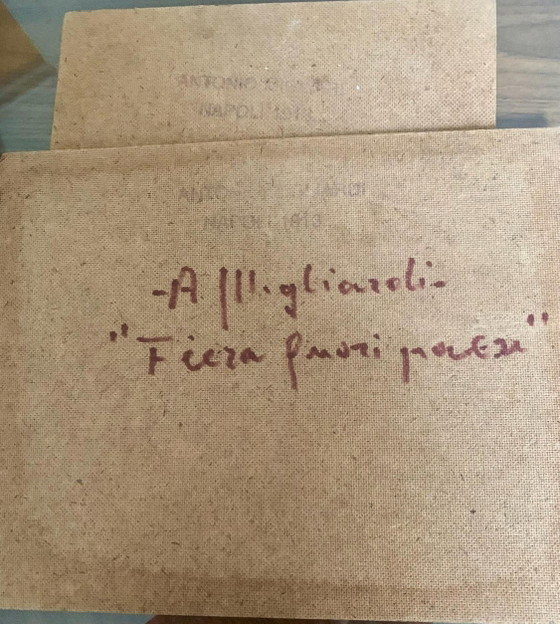 ANTONIO
NAPOLI 1913
NAPOLI 1913
- A Migliardi -
"Fiera fuori paese"